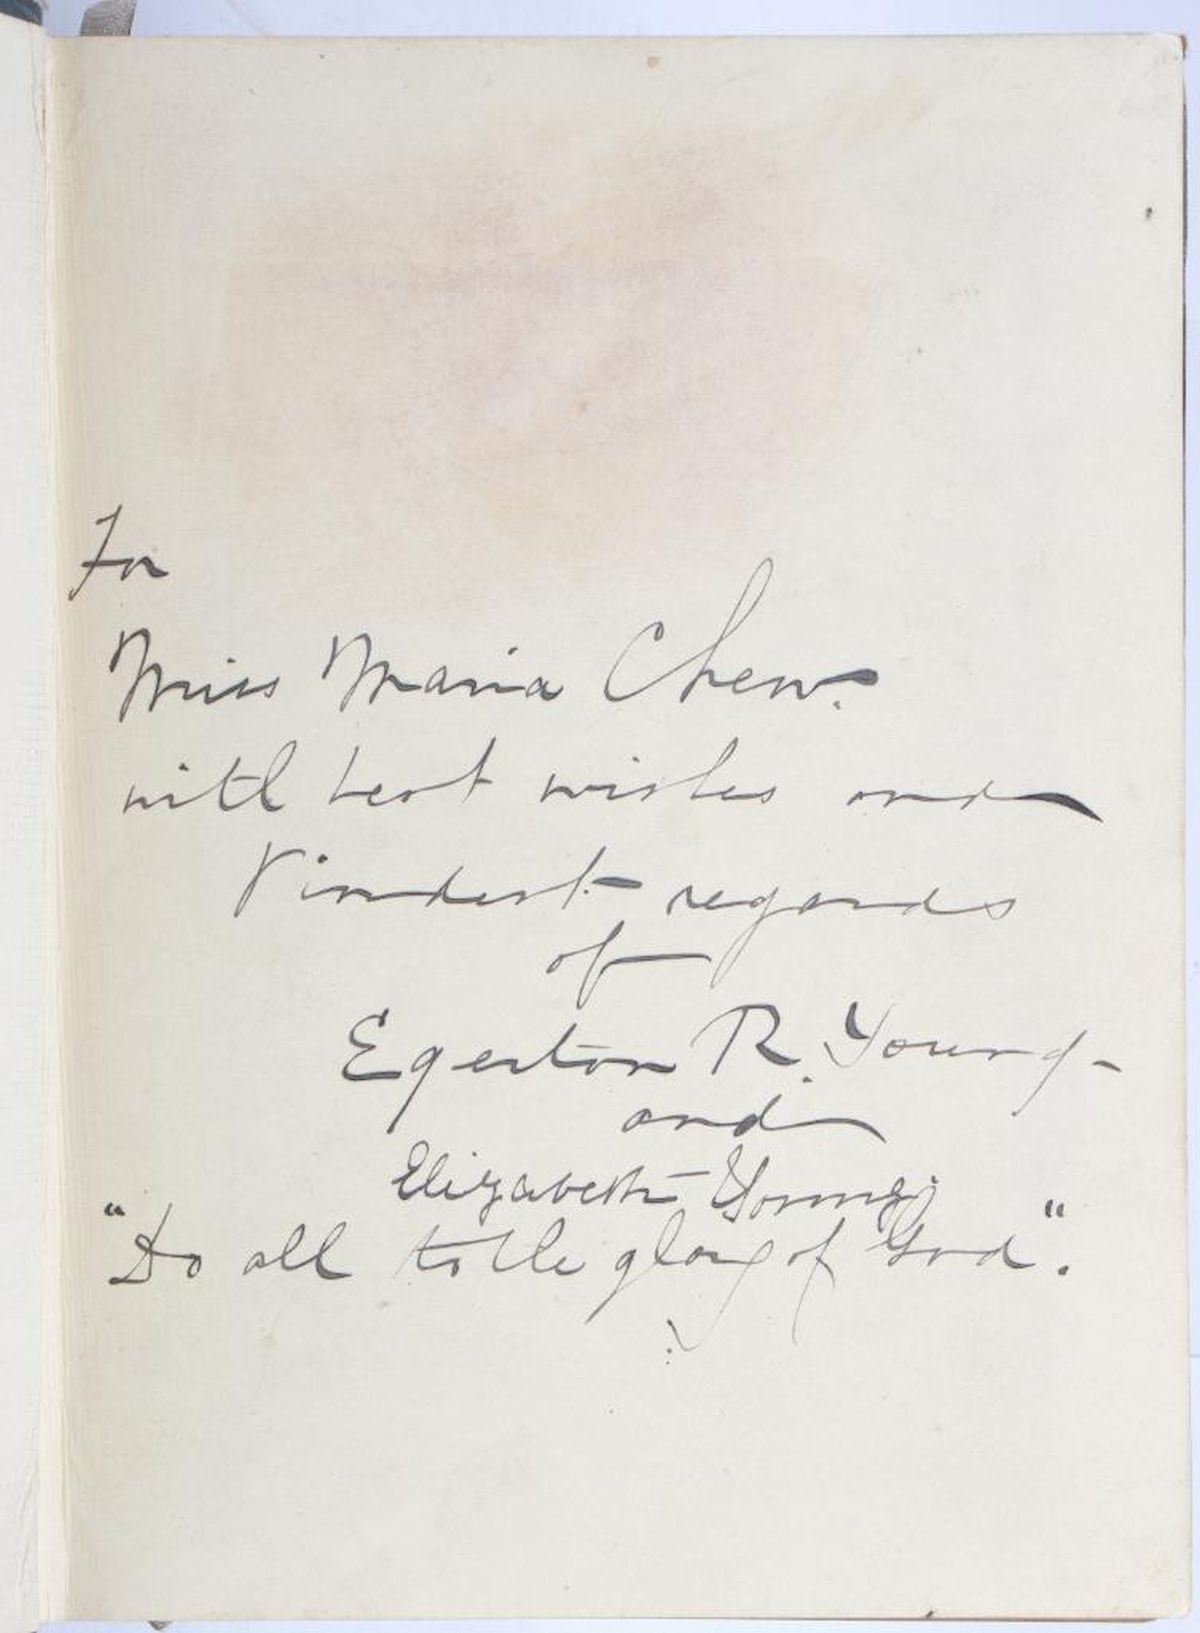 For
Miss Maria Chew.
with best wishes and
Kindest regards
of
Egerton R. Young
and
Elizabeth Young
"Do all to the glory of God".